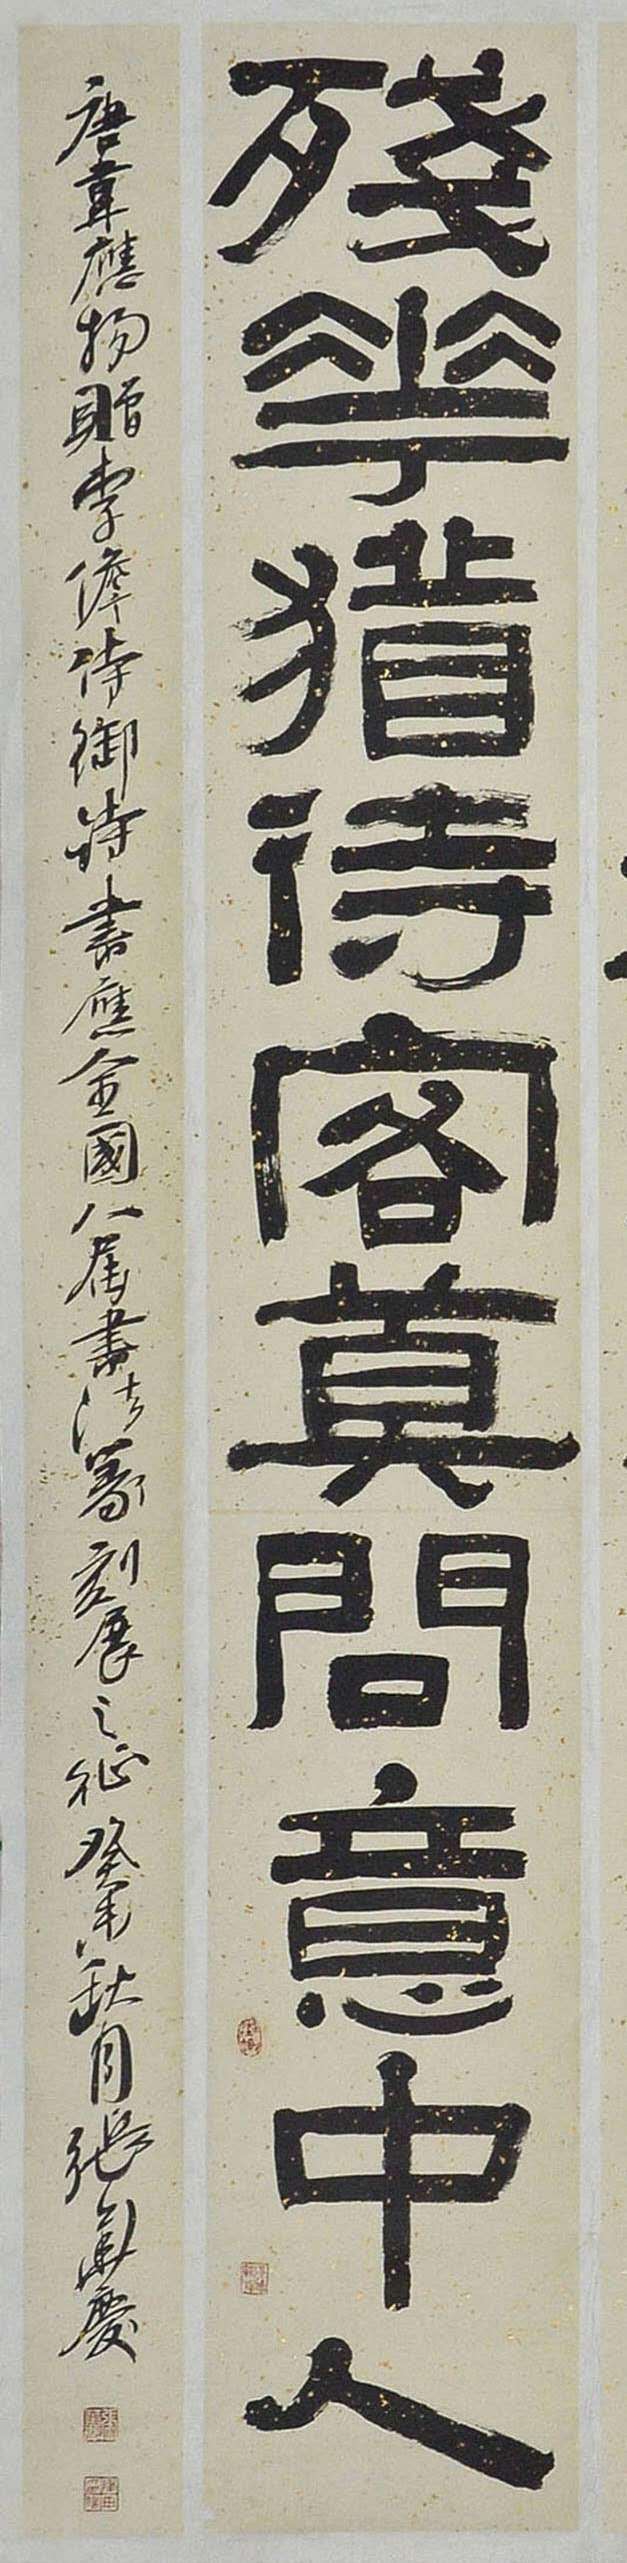 殘花猶待客莫問意中人
唐韋應物贈李儋侍御詩書應全國八屆書法篆刻展之征癸未秋月張華慶